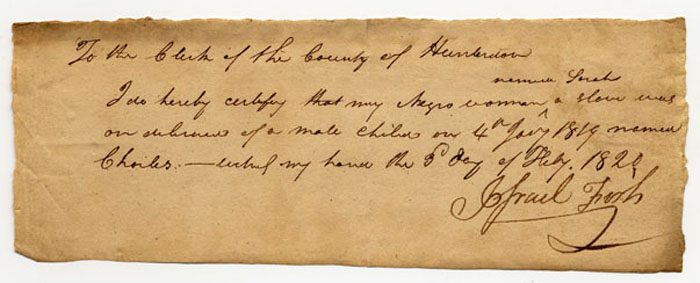 To the Clerk of the County of Hunterdon
named Sarah
I do hereby certify that my Negro woman ^ a slave was
on delivered of a male Child on 4th Jany 1819 named
Charles. — witness my hand the 3d day of Feby. 1820
Israel Frosh